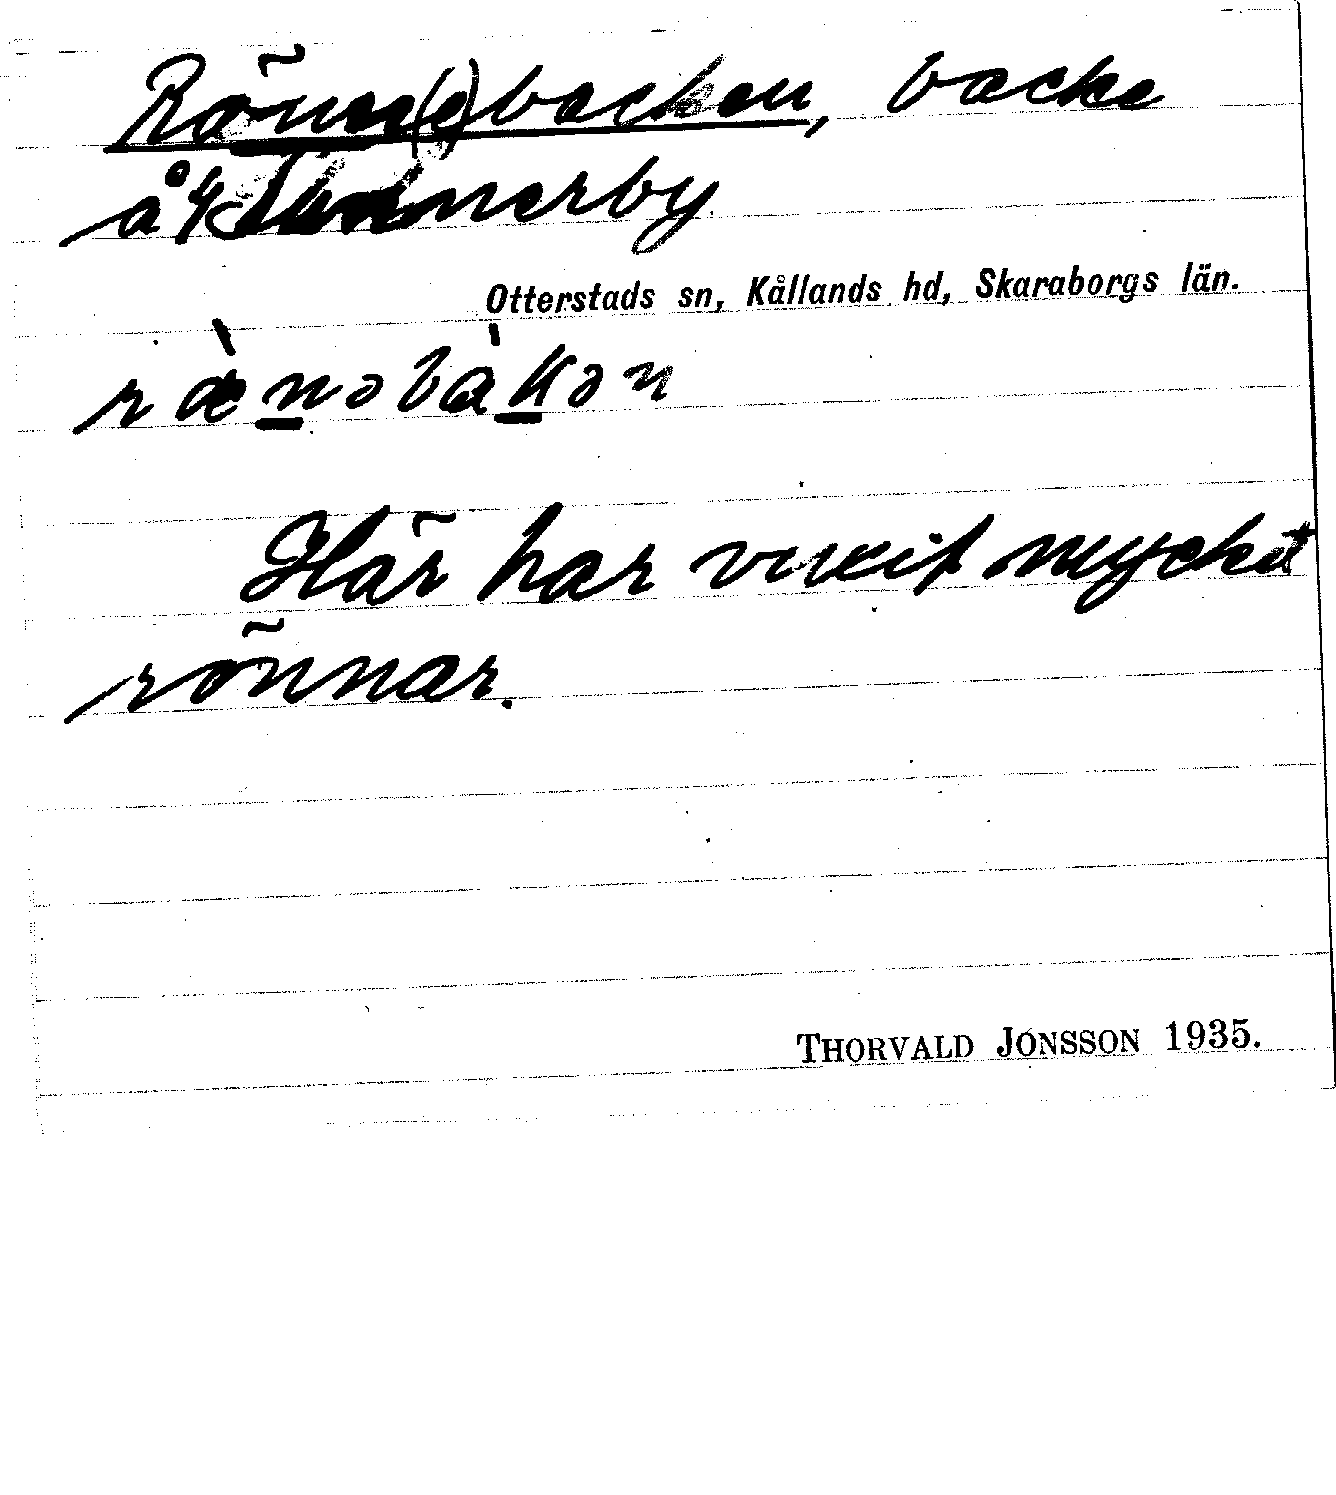 Rönne(e)backen, backe
å
Otterstads sn, Kållands hd, Skaraborgs län.
ræ̀nəbàkən
Här har vuxit mycket
rönnar.
THORVALD JONSSON 1935.